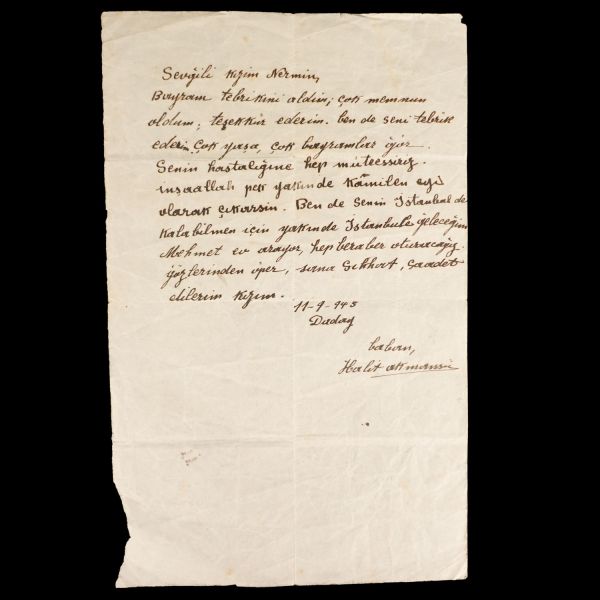 Sevgili kızım Nermin,
Bayram tebrikini aldım; çok memnun
oldum; teşekkür ederim. ben de seni tebrik
ederim, çok yaşa, çok bayramlar gör.
Senin hastalığına hep müteessiriz.
inşaallah pek yakında kâmilen eyi
olarak çıkarsın. Ben de senin İstanbul de
kalabilmen için yakında İstanbula geleceğim
Mehmet ev arayor, hep beraber oturacağız.
gözlerinden öper, sana Sıhhat, Saadet
dilerim kızım.
11-9-945
Daday
baban,
Halit akmansü